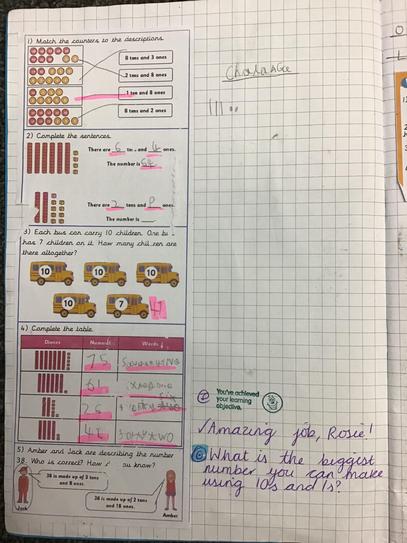 1) Match the counters to the descriptions.
8 tens and 3 ones
2 tens and 8 ones
1 ten and 8 ones
8 tens and 2 ones
2) Complete the sentences.
There are 6 tens and 4 ones.
The number is 64
There are 2 tens and 8 ones.
The number is
3) Each bus can carry 10 children. One bus
has 7 children on it. How many children are
there altogether?
10 10 10
10 7 47
4) Complete the table.
Dienes Numerals Words
75
61
26
42
5) Amber and Jack are describing the number
38. Who is correct? How do you know?
38 is made up of 3 tens
and 8 ones.
38 is made up of 2 tens
and 18 ones.
Jack
Amber
You've achieved
your learning
objective.
✓Amazing job, Rosie!
What is the biggest
number you can make
using 10s and 1s?